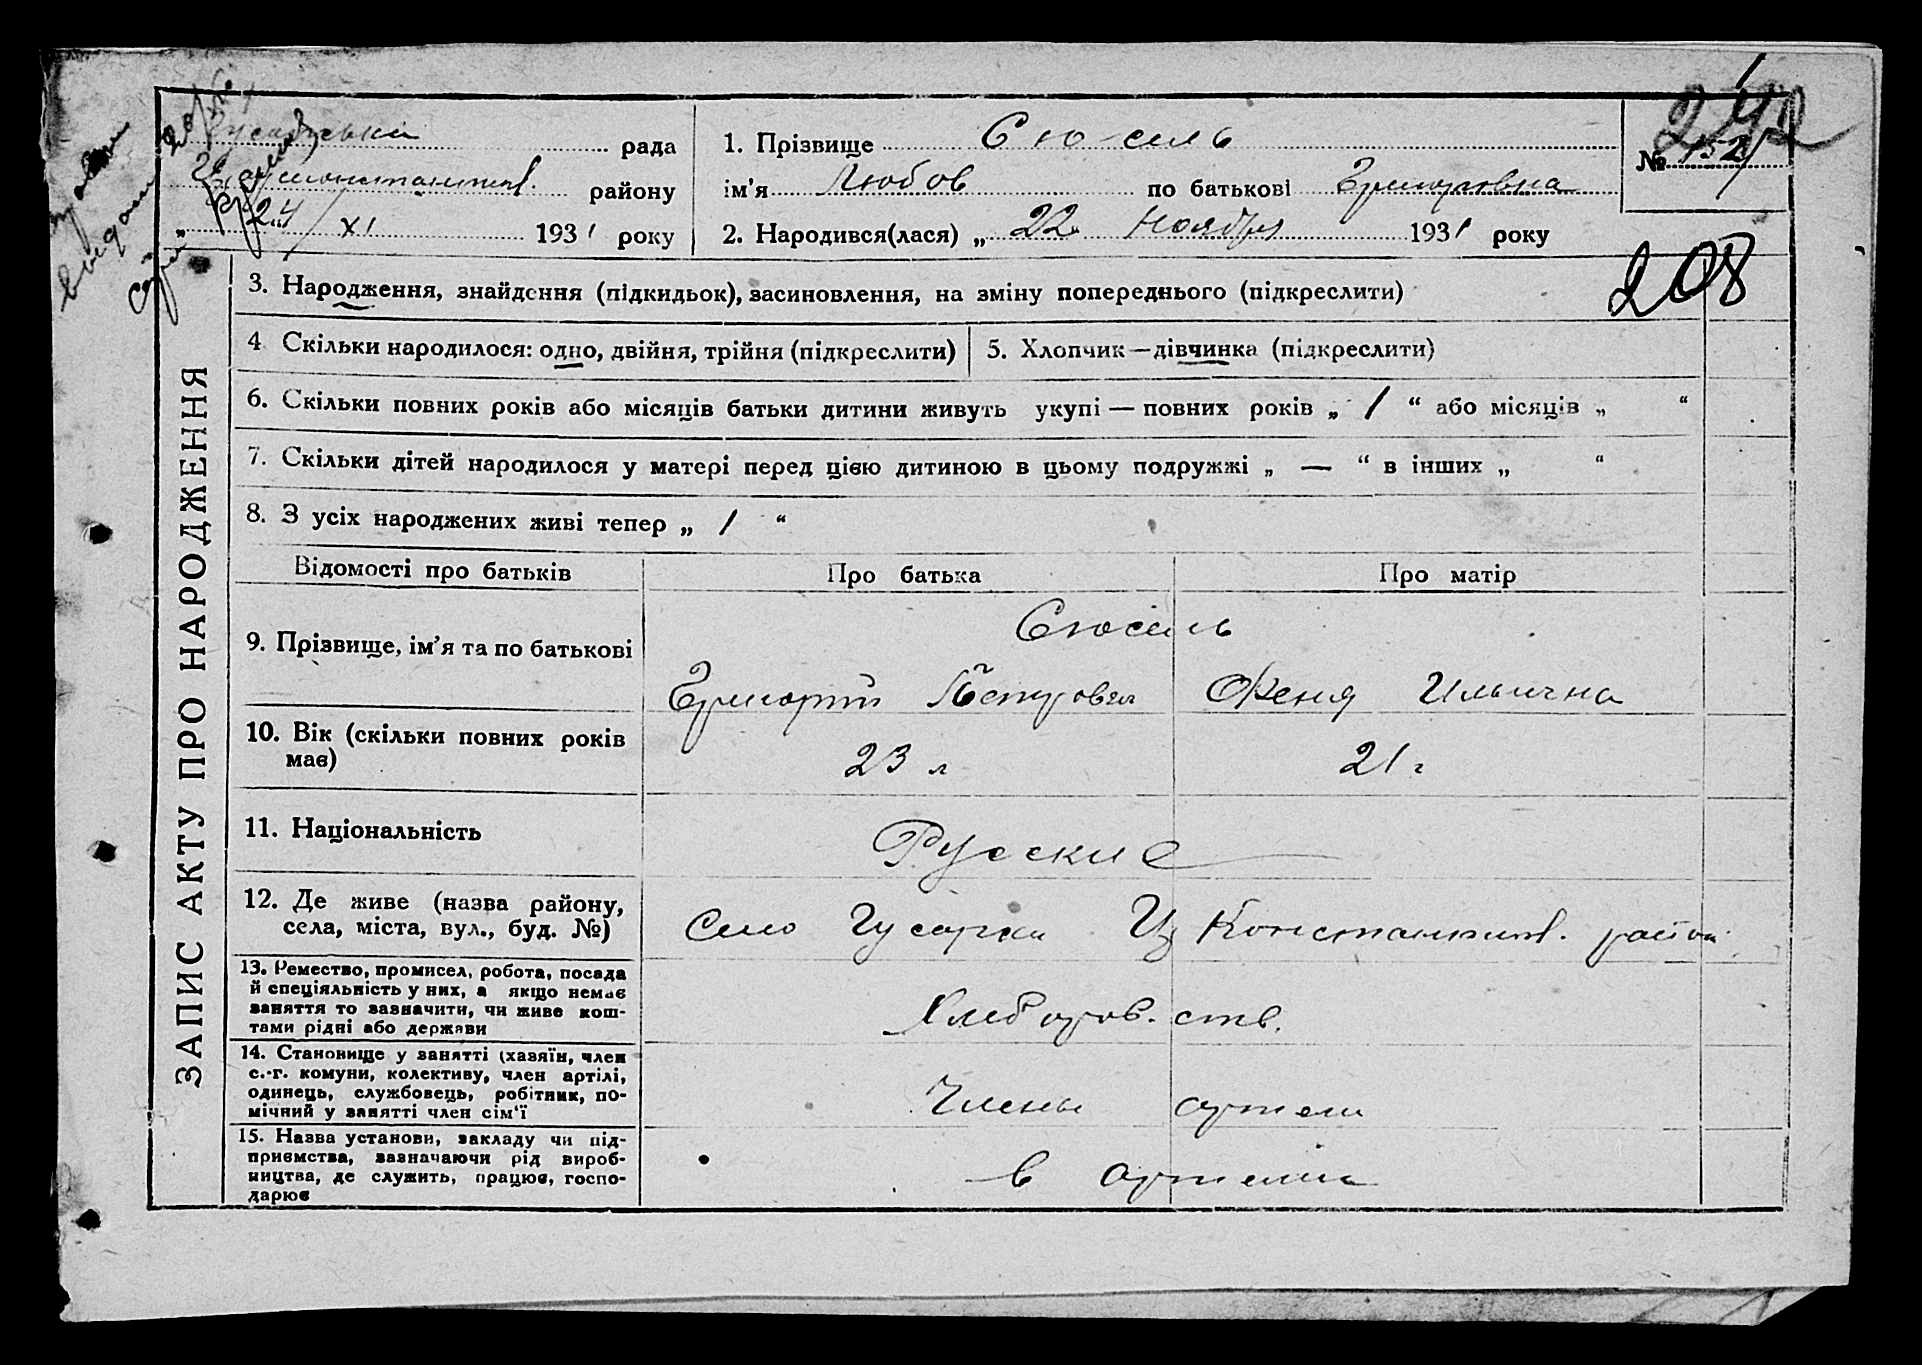 рада
району
„ 24/XI 1931 року
1. Прізвище Сюсель
ім'я Любов по батькові Григоровна
2. Народився(лася) „ 22 Ноября 1931 року
№ 152
208
ЗАПИС АКТУ ПРО НАРОДЖЕННЯ
3. Народження, знайдення (підкидьок), засиновлення, на зміну попереднього (підкреслити)
4 Скільки народилося: одно, двійня, трійня (підкреслити)
5. Хлопчик — дівчинка (підкреслити)
6. Скільки повних років або місяців батьки дитини живуть укупі — повних років „ 1 “ або місяців „ “
7. Скільки дітей народилося у матері перед цією дитиною в цьому подружжі „ — “ в інших „ “
8. З усіх народжених живі тепер „ 1 “
Відомості про батьків Про батька Про матір
Сюсель
9. Прізвище, ім'я та по батькові
Григорий Петрович Феня Ильична
10. Вік (скільки повних років
має)
23 л 21 г
11. Національність
Русские
12. Де живе (назва району,
села, міста, вул., буд. №)
Село Гусарка Ц Константинов. район
13. Ремество, промисел, робота, посада
й спеціяльність у них, а якщо немає
заняття то зазначити, чи живе кош-
тами рідні або держави
Хлебороб. ств.
14. Становище у занятті (хазяїн, член
с.-г. комуни, колективу, член артілі,
одинець, службовець, робітник, по-
мічний у занятті член сім'ї
Члены артели
15. Назва установи, закладу чи під-
приємства, зазначаючи рід вироб-
ництва, де служить, працює, госпо-
дарює
в артели